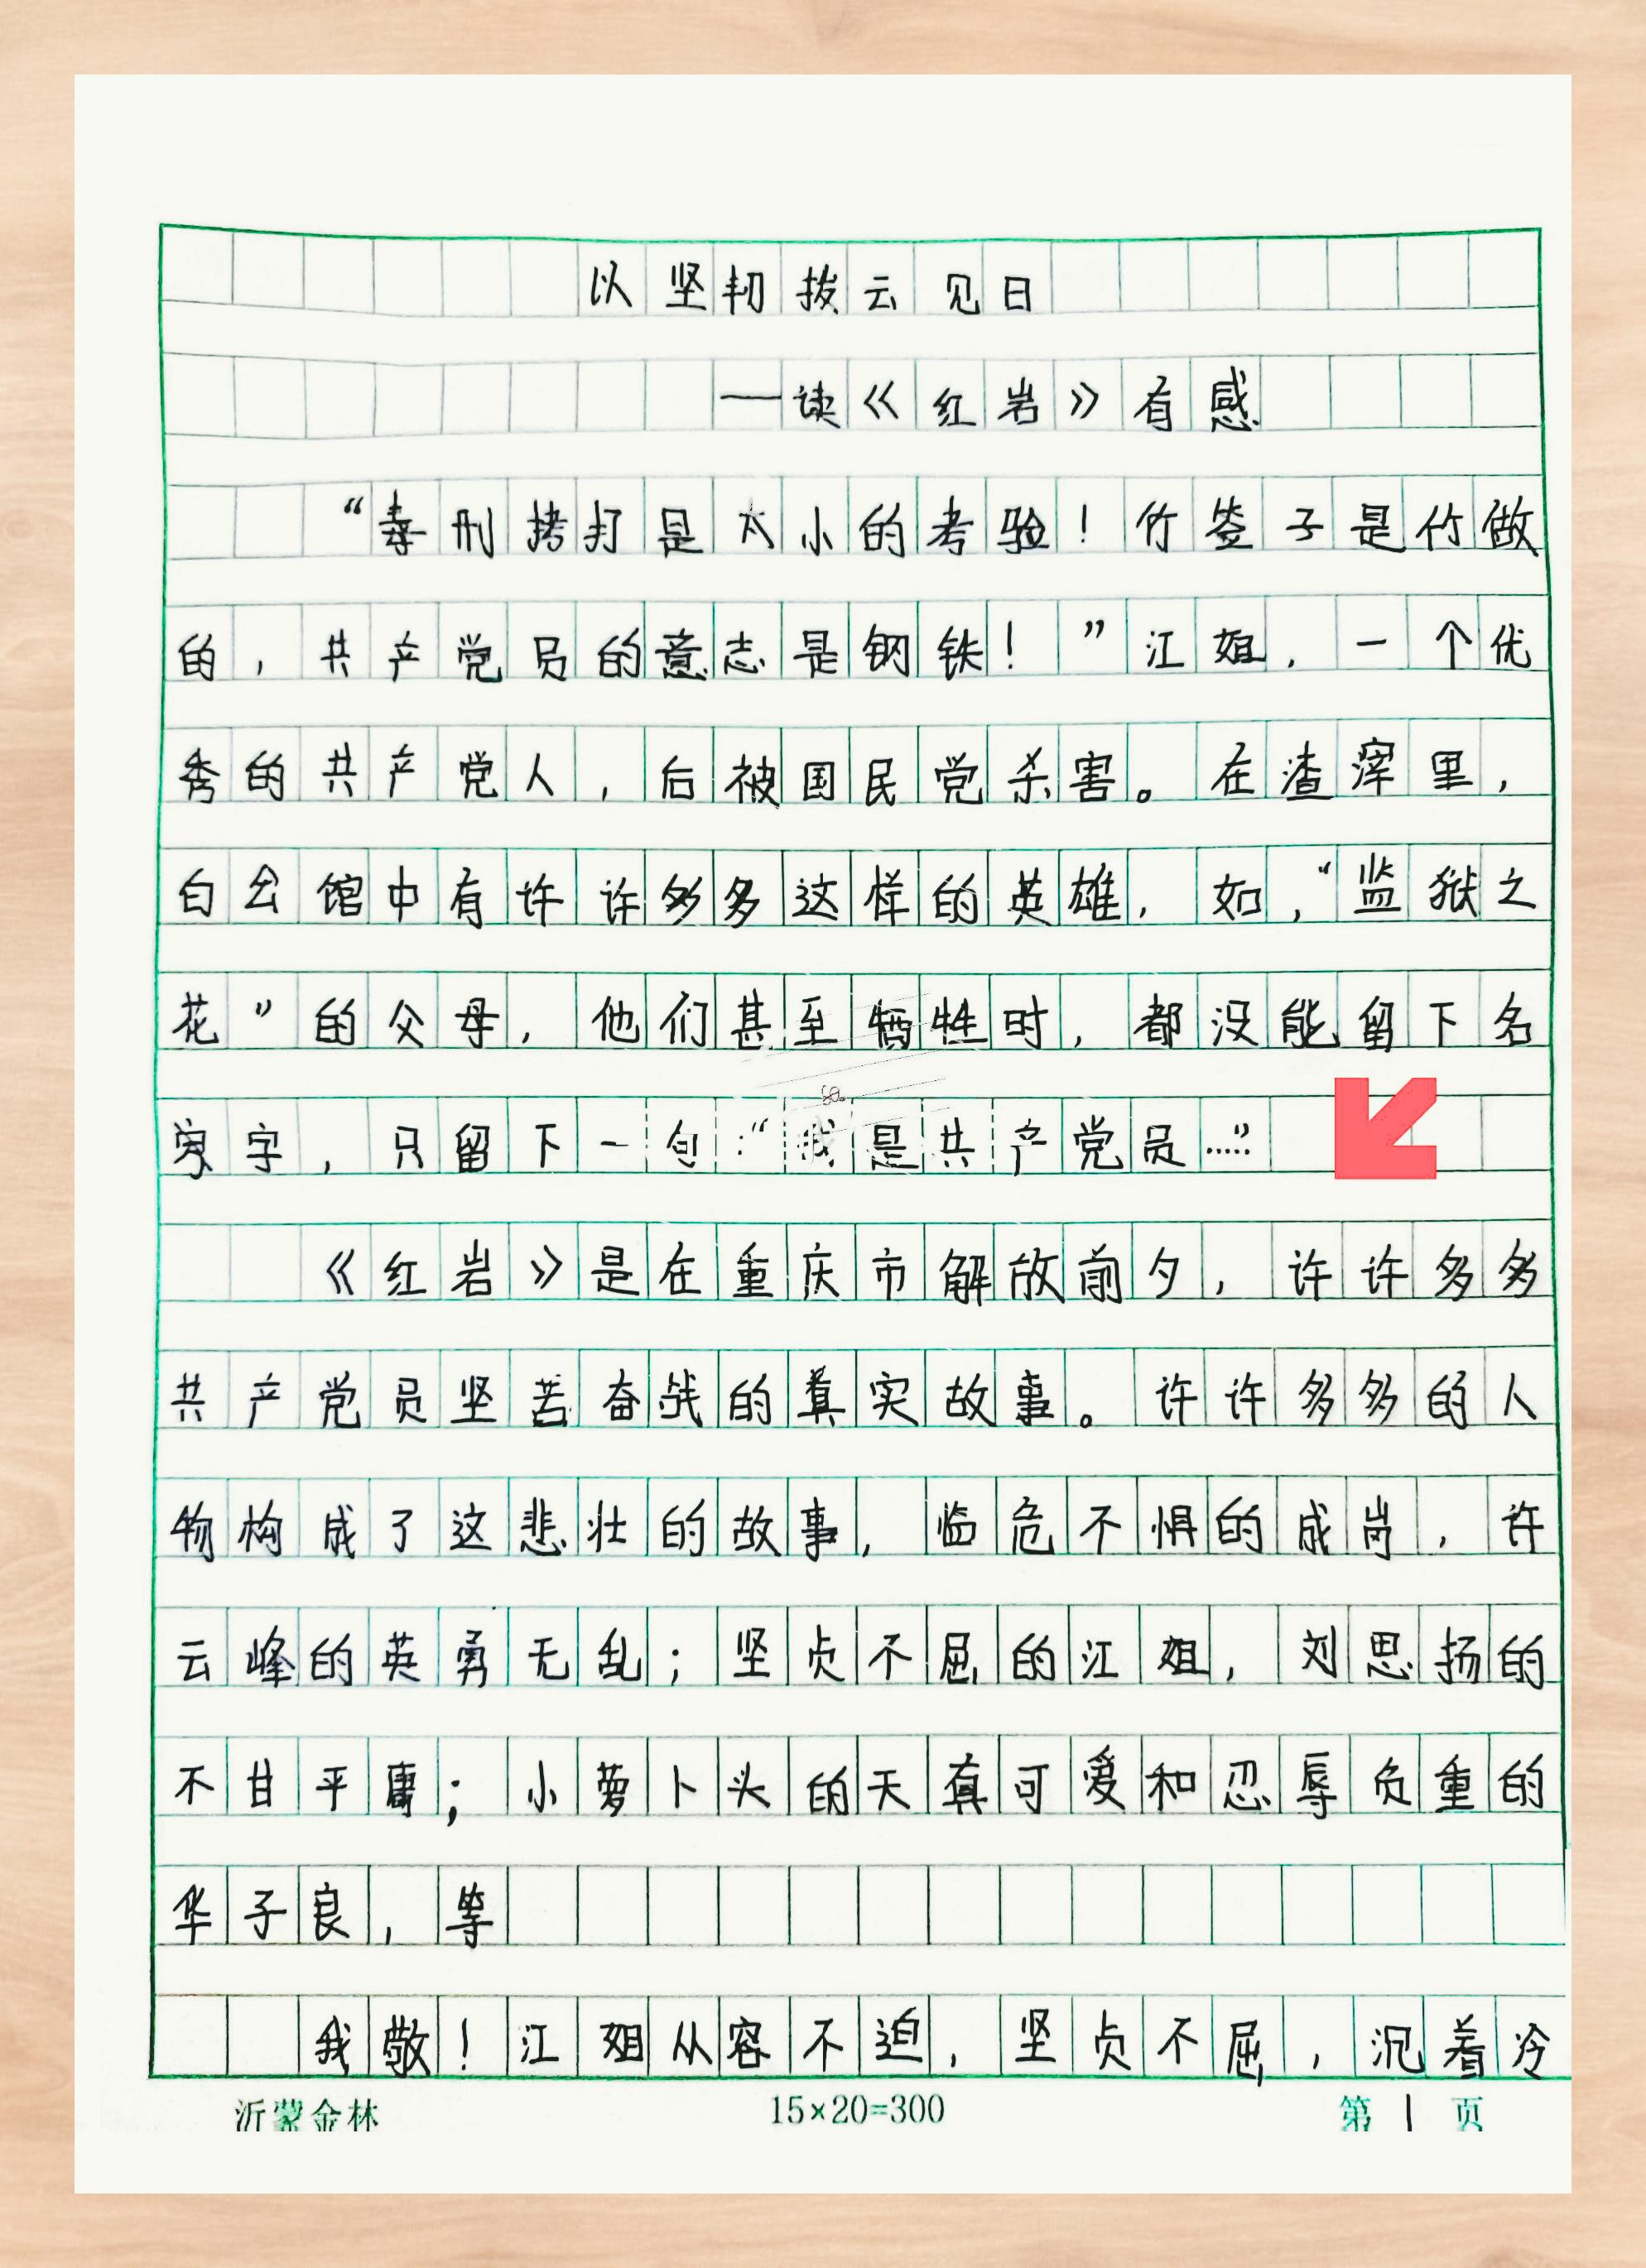 以坚韧拨云见日
——读《红岩》有感
“毒刑拷打是太小的考验！竹签子是竹做
的，共产党员的意志是钢铁！”江姐，一个优
秀的共产党人，后被国民党杀害。在渣滓里，
白公馆中有许许多多这样的英雄，如，“监狱之
花”的父母，他们甚至牺牲时，都没能留下名
字，只留下一句：“我是共产党员……”
《红岩》是在重庆市解放前夕，许许多多
共产党员坚苦奋战的真实故事。许许多多的人
物构成了这悲壮的故事，临危不惧的成岗，许
云峰的英勇无乱；坚贞不屈的江姐，刘思扬的
不甘平庸；小萝卜头的天真可爱和忍辱负重的
华子良，等
我敬！江姐从容不迫，坚贞不屈，沉着冷
沂蒙金林
15×20=300
第1页